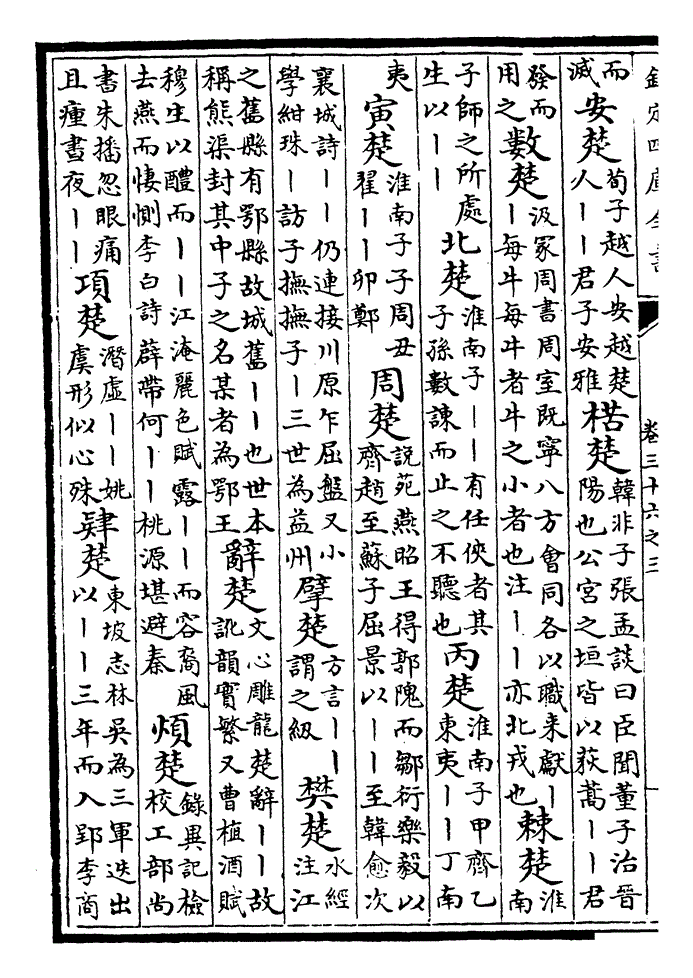 欽定四庫全書 卷三十六之三
而滅安楚荀子越人安越楚人丨丨君子安雅楛楚韓非子張孟談曰臣聞董子治晉陽也公宮之垣皆以荻蒿丨丨君
發而用之數楚汲冢周書周室既寧八方會同各以職來獻丨丨每牛每牛者牛之小者也注丨丨亦北戎也棘楚淮南
子師之所處生以丨丨北楚淮南子丨丨有任俠者其子孫數諫而止之不聽也丙楚淮南子甲齊乙東夷丨丨丁南
夷寅楚淮南子子周丑翟丨丨卯鄭周楚說苑燕昭王得郭隗而鄒衍樂毅以齊趙至蘇子屈景以丨丨至韓愈次
襄城詩丨丨仍連接川原乍屈盤又小學紺珠丨訪子撫撫子丨三世為益州擘楚方言丨丨謂之紉樊楚水經注江
之舊縣有鄂縣故城舊丨丨也世本稱熊渠封其中子之名某者為鄂王辭楚文心雕龍楚辭丨丨故訛韻實繁又曹植酒賦
穆生以醴而丨丨江淹麗色賦露丨丨而容裔風去燕而悽惻李白詩薜帶何丨丨桃源堪避秦煩楚錄異記檢校工部尚
書朱播忽眼痛且瘇晝夜丨丨項楚潛虛丨丨姚虞形似心殊肄楚東坡志林吳為三軍迭出以丨丨三年而入郢李商